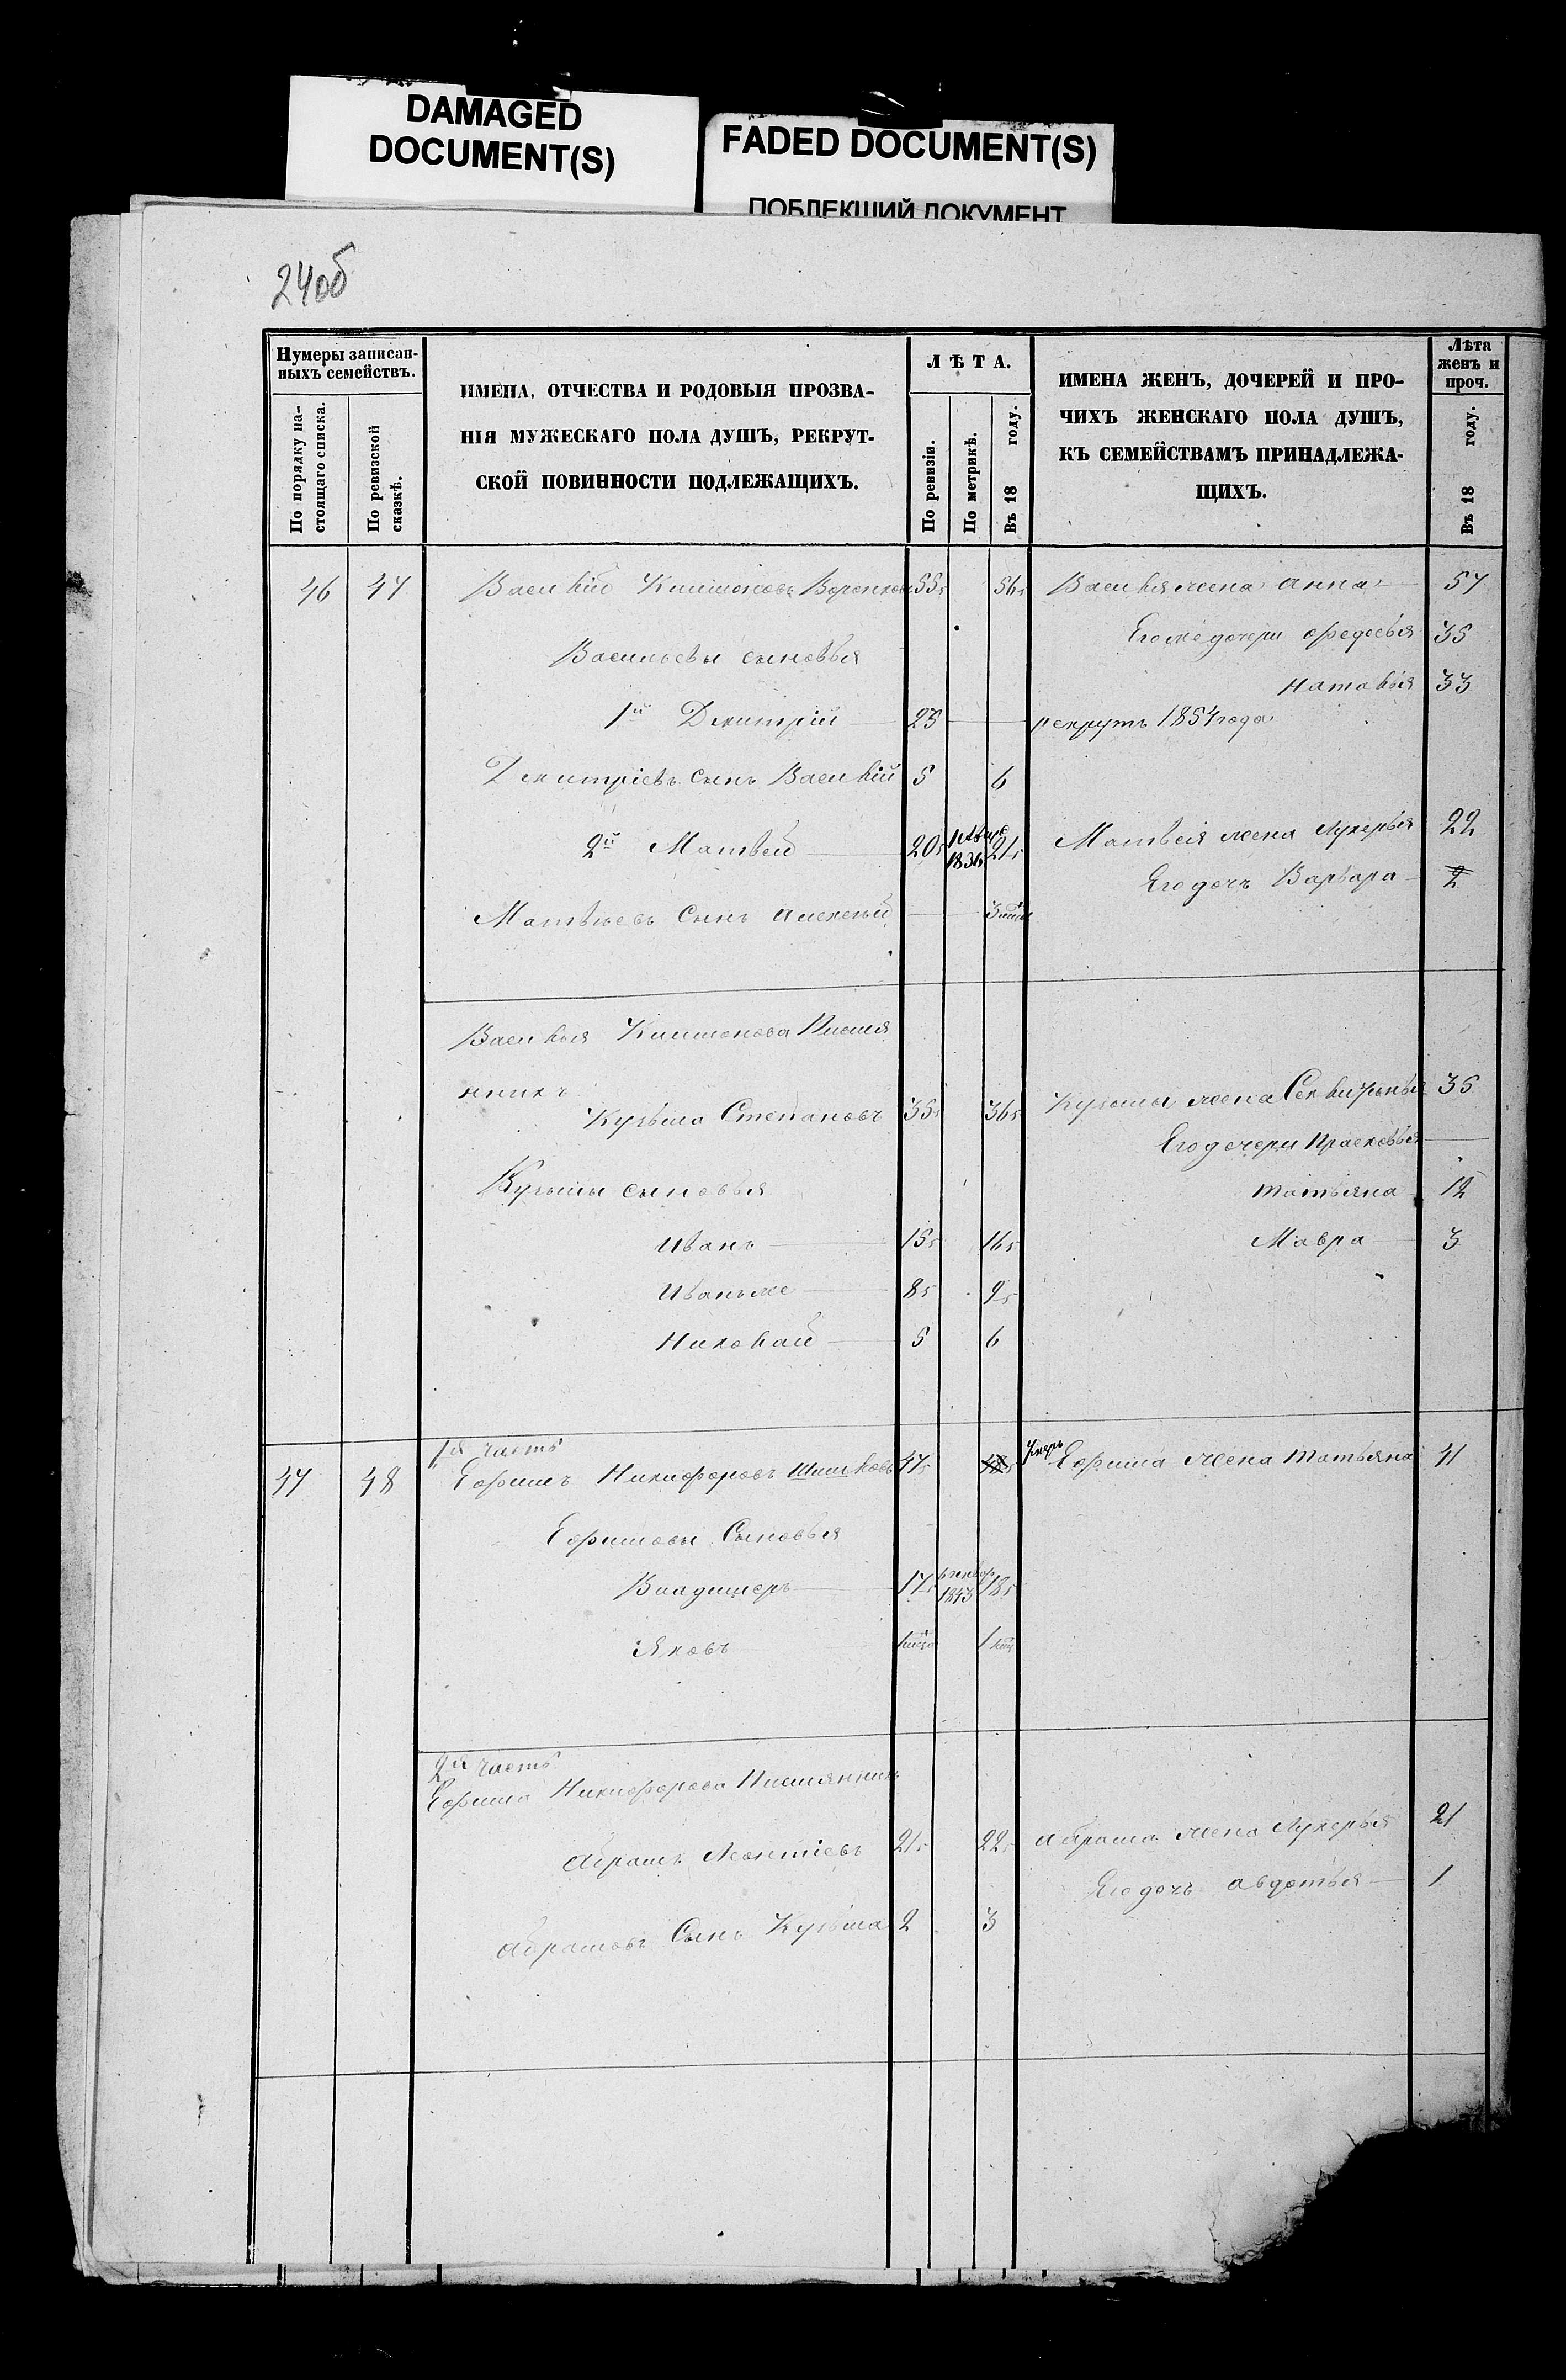 DAMAGED
DOCUMENT(S)
FADED DOCUMENT(S)
ПОБЛЕКШИЙ ДОКУМЕНТ
24об
Нумеры записан-
ныхъ семействъ.
По порядку на-
стоящаго списка.
По ревизской
сказкѣ.
ИМЕНА, ОТЧЕСТВА И РОДОВЫЯ ПРОЗВА-
НІЯ МУЖЕСКАГО ПОЛА ДУШЪ, РЕКРУТ-
СКОЙ ПОВИННОСТИ ПОДЛЕЖАЩИХЪ.
ЛѢТА.
По ревизіи.
По метрикѣ.
Въ 18 году.
ИМЕНА ЖЕНЪ, ДОЧЕРЕЙ И ПРО-
ЧИХЪ ЖЕНСКАГО ПОЛА ДУШЪ,
КЪ СЕМЕЙСТВАМЪ ПРИНАДЛЕЖА-
ЩИХЪ.
Лѣта
женъ и
проч.
Въ 18 году.
46 47 Василій 55 56 Василья жена Анна 57
Егоже дочери Федосья 35
Васильевы сыновья
Наталья 33
1й Дмитрій 23 рекрутъ 1854 года
Дмитріевъ сынъ Василій 5 6
2й Матвей 20 1836 21 Матвея жена Лукерья 22
Его дочь Варвара 2
Матвеевъ Сынъ Алексей 3
Василья Племя
нникъ
Кузьма Степановъ 35 36 Кузьмы жена 35
Его дочери Прасковья
Кузьмы сыновья Татьяна 12
Иванъ 15 16 Мавра 3
Иванъ же 8 9
Николай 5 6
1я часть
47 48 Ефимъ Никифоровъ Шишковъ 47 48 умеръ Ефима жена Татьяна 41
Ефимовы Сыновья
Владимеръ 17 1843 18
Яковъ 1 1
2я часть
Ефима Никифорова Племянникъ
Абрамъ Леонтіевъ 21 22 Абрама жена Лукерья 21
Его дочь Авдотья 1
Абрамовъ Сынъ Кузьма 2 3